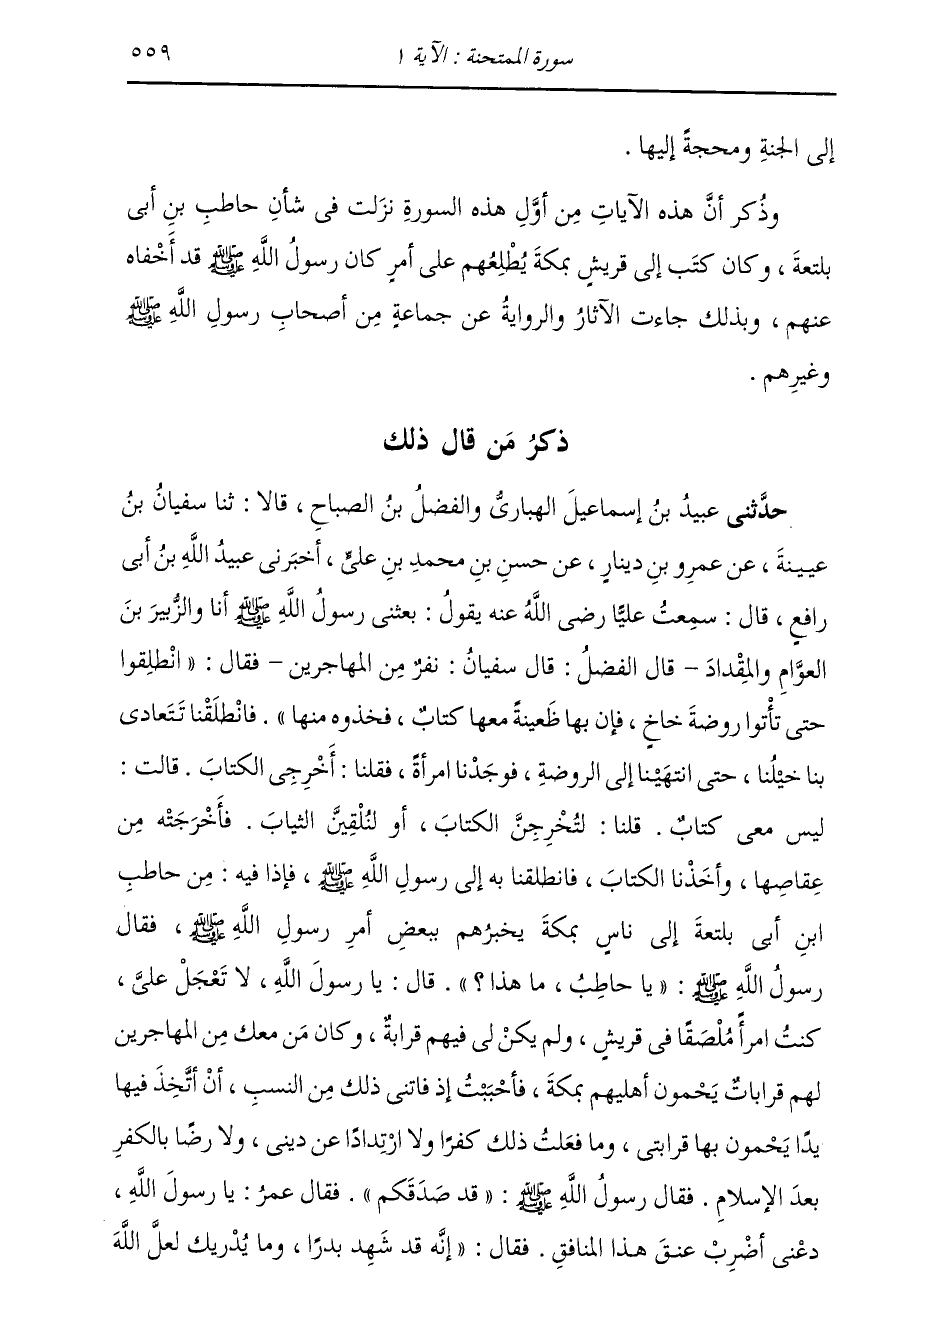 سورة الممتحنة : الآية ١ ٥٥٩
إلى الجنةِ ومحجةً إليها .
وذُكر أنَّ هذه الآياتِ مِن أوَّلِ هذه السورةِ نزَلت فى شأنِ حاطبِ بنِ أبى
بلتعةَ ، وكان كتَب إلى قريشٍ بمكةَ يُطْلِعُهم على أمرٍ كان رسولُ اللَّهِ ﷺ قد أَخْفاه
عنهم ، وبذلك جاءت الآثارُ والروايةُ عن جماعةٍ مِن أصحابِ رسولِ اللَّهِ ﷺ
وغيرِهم .
ذكرُ مَن قال ذلك
حدَّثنى عبيدُ بنُ إسماعيلَ الهبارىُّ والفضلُ بنُ الصباحِ ، قالا : ثنا سفيانُ بنُ
عيينةَ ، عن عمرِو بنِ دينارٍ ، عن حسنِ بنِ محمدِ بنِ علىٍّ ، أخبَرنى عبيدُ اللَّهِ بنُ أبى
رافعٍ ، قال : سمِعتُ عليًّا رضى اللَّهُ عنه يقولُ : بعثنى رسولُ اللَّهِ ﷺ أنا والزُّبيرَ بنَ
العوَّامِ والمِقْدادَ – قال الفضلُ : قال سفيانُ : نفرٌ مِن المهاجرين – فقال : « انْطلِقوا
حتى تأْتوا روضةَ خاخٍ ، فإن بها ظَعينةً معها كتابٌ ، فخذوه منها » . فانْطلَقْنا تَتَعادى
بنا خيْلُنا ، حتى انتهَيْنا إلى الروضةِ ، فوجَدْنا امرأةً ، فقلنا : أَخْرِجى الكتابَ . قالت :
ليس معى كتابٌ . قلنا : لتُخْرِجِنَّ الكتابَ ، أو لنُلْقِينَّ الثيابَ . فأَخْرَجَتْه مِن
عِقاصِها ، وأخَذْنا الكتابَ ، فانطلقنا به إلى رسولِ اللَّهِ ﷺ ، فإذا فيه : مِن حاطبِ
ابنِ أبى بلتعةَ إلى ناسٍ بمكةَ يخبرُهم ببعضِ أمرِ رسولِ اللَّهِ ﷺ ، فقال
رسولُ اللَّهِ ﷺ : « يا حاطِبُ ، ما هذا ؟ » . قال : يا رسولَ اللَّهِ ، لا تَعْجَلْ علىَّ ،
كنتُ امرأً مُلْصَقًا فى قريشٍ ، ولم يكنْ لى فيهم قرابةٌ ، وكان مَن معك مِن المهاجرين
لهم قراباتٌ يَحْمون أهليهم بمكةَ ، فأحْبَبْتُ إذ فاتنى ذلك مِن النسبِ ، أنْ أتَّخِذَ فيها
يدًا يَحْمون بها قرابتى ، وما فعَلتُ ذلك كفرًا ولا ارْتِدادًا عن دينى ، ولا رضًا بالكفرِ
بعدَ الإسلامِ . فقال رسولُ اللَّهِ ﷺ : « قد صَدَقَكم » . فقال عمرُ : يا رسولَ اللَّهِ ،
دعْنى أضْرِبْ عنقَ هذا المنافقِ . فقال : « إنَّه قد شَهِد بدرًا ، وما يُدْريك لعلَّ اللَّهَ